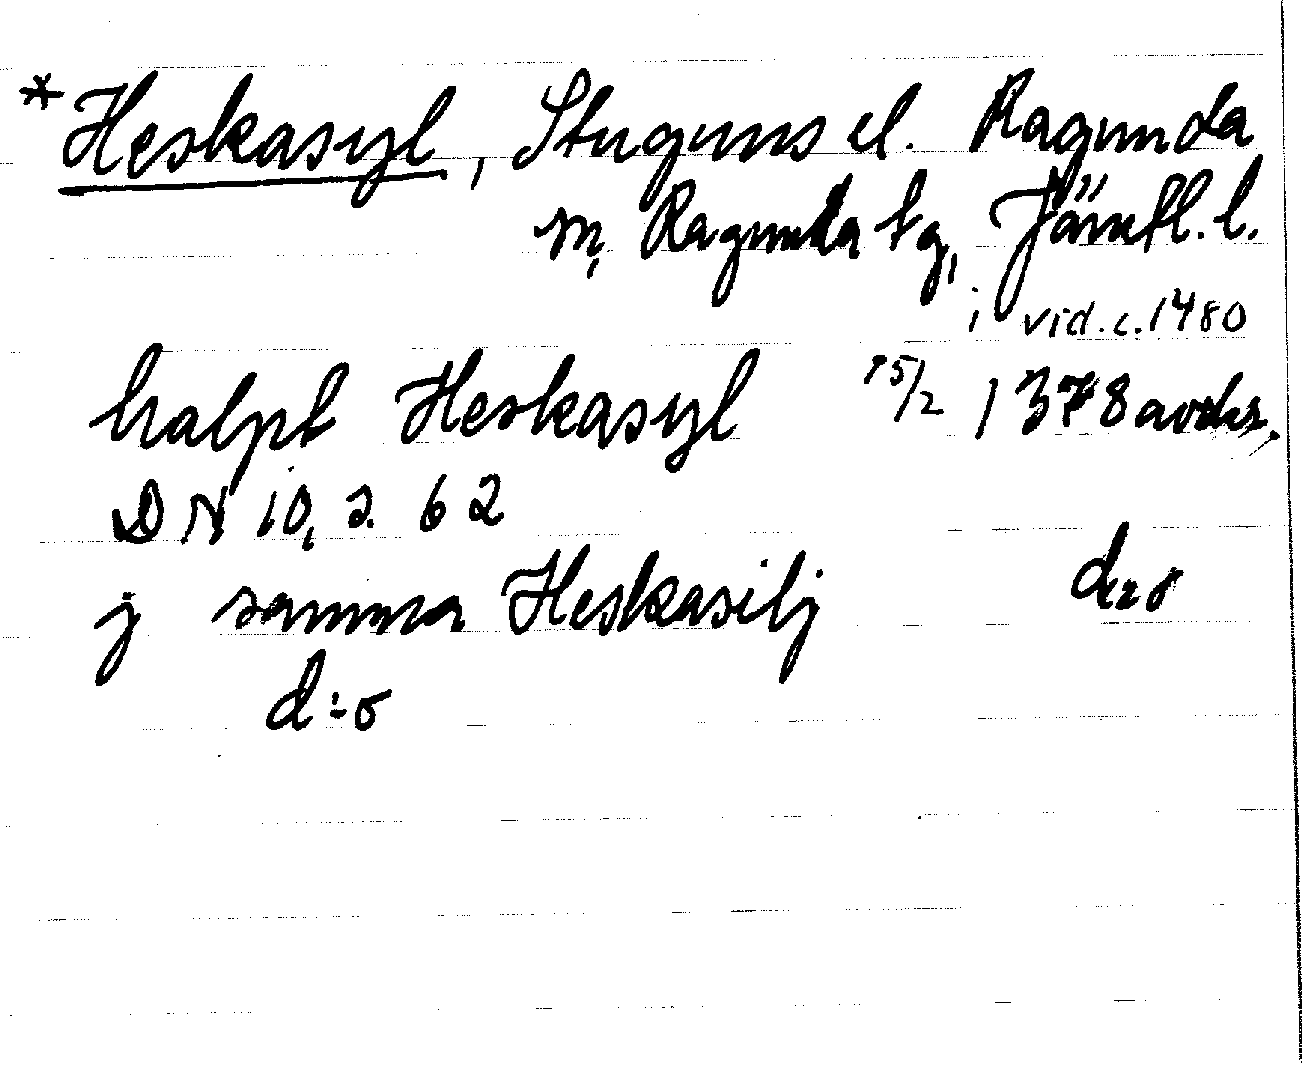 *Heskasyl, Stuguns el. Ragunda
sn, Ragunda tg, Jämtl. l.
i vid. c. 1480
halpt Heskasyl 15/2 1378 avskr.
DN 10, s. 62
j samma Heskasilj d:o
d:o